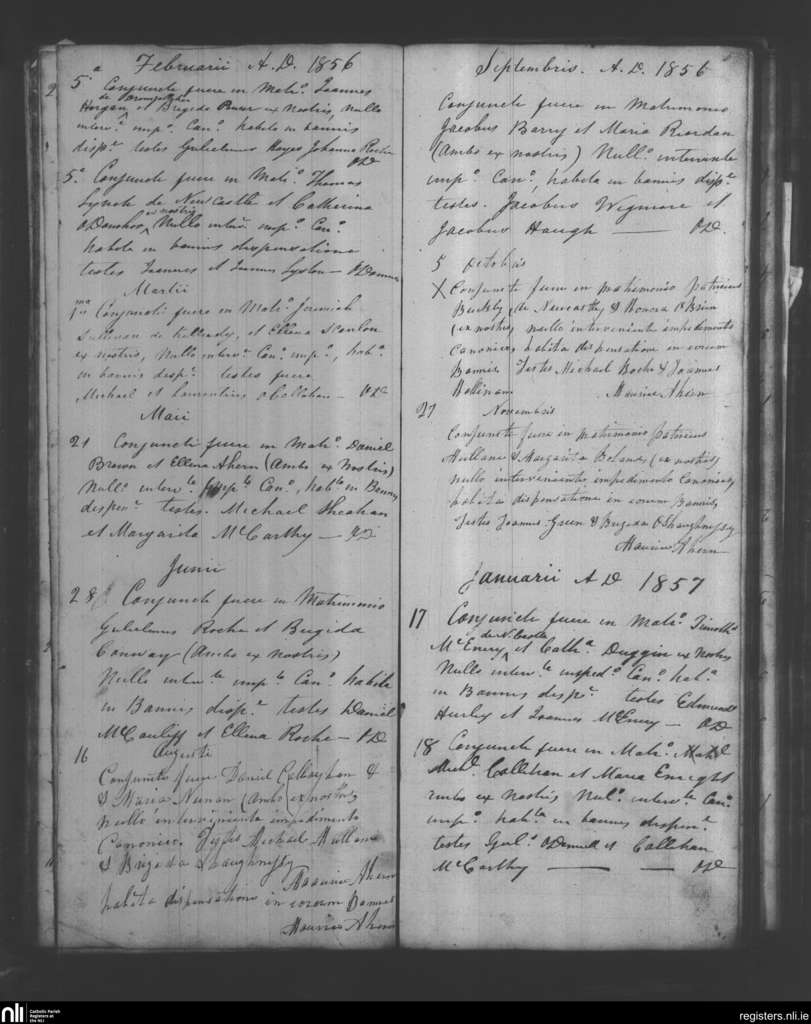 Februarii A.D. 1856
5.a Conjuncte fuere in Mato. Joannes
de Broomfield
Horgan et Brigida Power ex nostris, nullo
interv.e imp.o Can.o habita in bannis
disp.e testes Gulielmus Hayes Johanna Roche
OD
5.o Conjuncte fuere in Mat.o Thomas
Lynch de Newcastle et Catherina
ex nostris
O Donohoe Nullo interv. imp.o Can.o
habita in bannis dispensatione
testes Joannes et Joannes Lyston — O Donnell
Martii
1ma Conjuncti fuere in Mat.o Jeremiah
Sullivan de Kilready, et Ellena Scanlon
ex nostris, Nullo interv.e Can.o imp.o, hab.a
in bannis disp.e testes fuere
Michael et Laurentius O Callahan — OD
Maii
21 Conjuncti fuere in Mat.o Daniel
Brown et Ellena Ahern (Ambo ex Nostris)
Null.o interv.te imp.to Can.o, hab.ta in Bannis
dispen.e testes. Michael Sheahan
et Margarita McCarthy —
Junii
28 Conjuncte fuere in Matrimonio
Gulielmus Roche et Brigida
Conway (Ambo ex nostris)
Nullo interv.te imp.to Can.o habita
in Bannis disp.e testes Daniel
McCauliff et Ellena Roche — OD
16 Augusti
Conjuncte fuere Daniel Callaghan &
& Maria Nunan (Ambo ex nostris)
nullo interveniente impedimento
Canonico. Testes Michael Mullane
& Brigida Shaughnessy
Maurice Ahern
habita dispensatione in eorum Bannis
Maurice Ahern
Septembris. A.D. 1856
Conjuncte fuere in Matrimonio
Jacobus Barry et Maria Riordan
(Ambo ex nostris) Null.o interveniente
imp.o Can.o, habita in bannis disp.e
testes. Jacobus Wigmore et
Jacobus Haugh — OD.
5 Octobris
X Conjuncte fuere in matrimonio Patricius
Buckly de Newcastle, & Honora O'Brien
(ex nostris) nullo interveniente impedimento
Canonico, habita dispensatione in eorum
Bannis Testes Michael Roche & Joannes
Hallinan Maurice Ahern
27 Novembris
Conjuncte fuere in matrimonio Patricius
Mullane & Margarita Boland (ex nostris)
nullo interveniente impedimento Canonico,
habita dispensatione in eorum Bannis
Testes Joannes Green & Brigida O'Shaughnessy
Maurice Ahern
Januarii A D 1857
17 Conjuncte fuere in Mat.o Timoth.s
de N.Castle
McEniry et Cath.a Duggin ex Nostris
Nullo interv.te imped.o Can.o hab.a
in Bannis disp.e testes Edmund
Hurley et Joannes McEniry — OD
18 Conjuncte fuere in Mat.o
Mich.l Callihan et Maria Enright
ambo ex nostris Nul.o interv.te Can.o
imp.o hab.ta in bannis dispen.e
testes Gul.s O Donnell et Callihan
McCarthy — — OD
nli Catholic Parish
Registers at
the NLI
registers.nli.ie